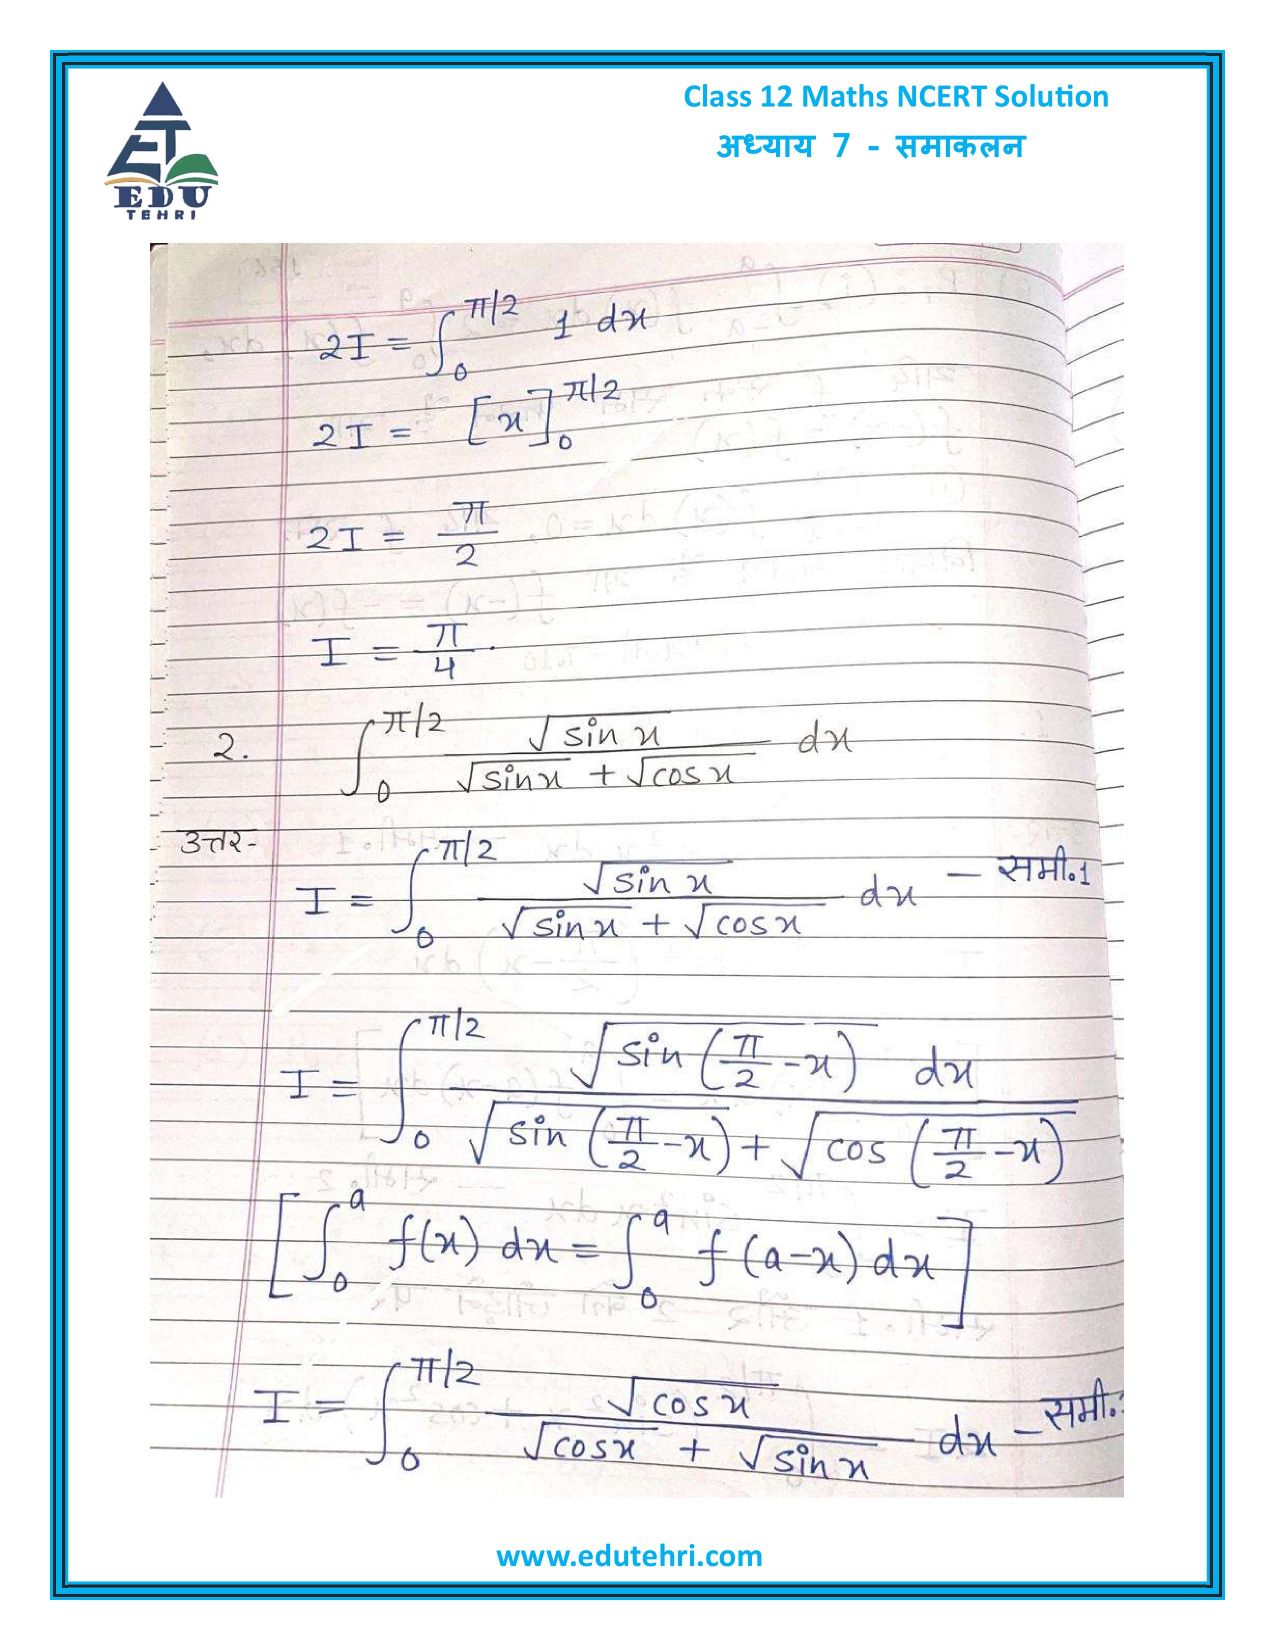 Class 12 Maths NCERT Solution
अध्याय 7 - समाकलन
EDU
TEHRI
2I = ∫₀^{π/2} 1 dx
2I = [x]₀^{π/2}
2I = π/2
I = π/4 .
2. ∫₀^{π/2} √sin x / (√sin x + √cos x) dx
उत्तर-
I = ∫₀^{π/2} √sin x / (√sin x + √cos x) dx - समी.1
I = ∫₀^{π/2} √sin(π/2 - x) dx / (√sin(π/2 - x) + √cos(π/2 - x))
[∫₀^a f(x) dx = ∫₀^a f(a-x) dx]
I = ∫₀^{π/2} √cos x / (√cos x + √sin x) dx - समी.
www.edutehri.com